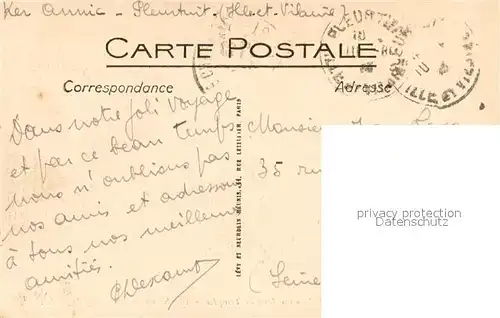 Ker Annic - Pleurtuit - (Ille et Vilaine)
CARTE POSTALE
Correspondance
Adresse
Dans notre joli voyage
et par ce beau temps
nous n'oublions pas
nos amis et adressons
à tous nos meilleures
amitiés.
Monsieur
35 rue
(Seine
PLEURTUIT
ILLE ET VILAINE
LÉVY ET NEURDEIN RÉUNIS, 44, RUE LETELLIER, PARIS
physical copying protection
watermark